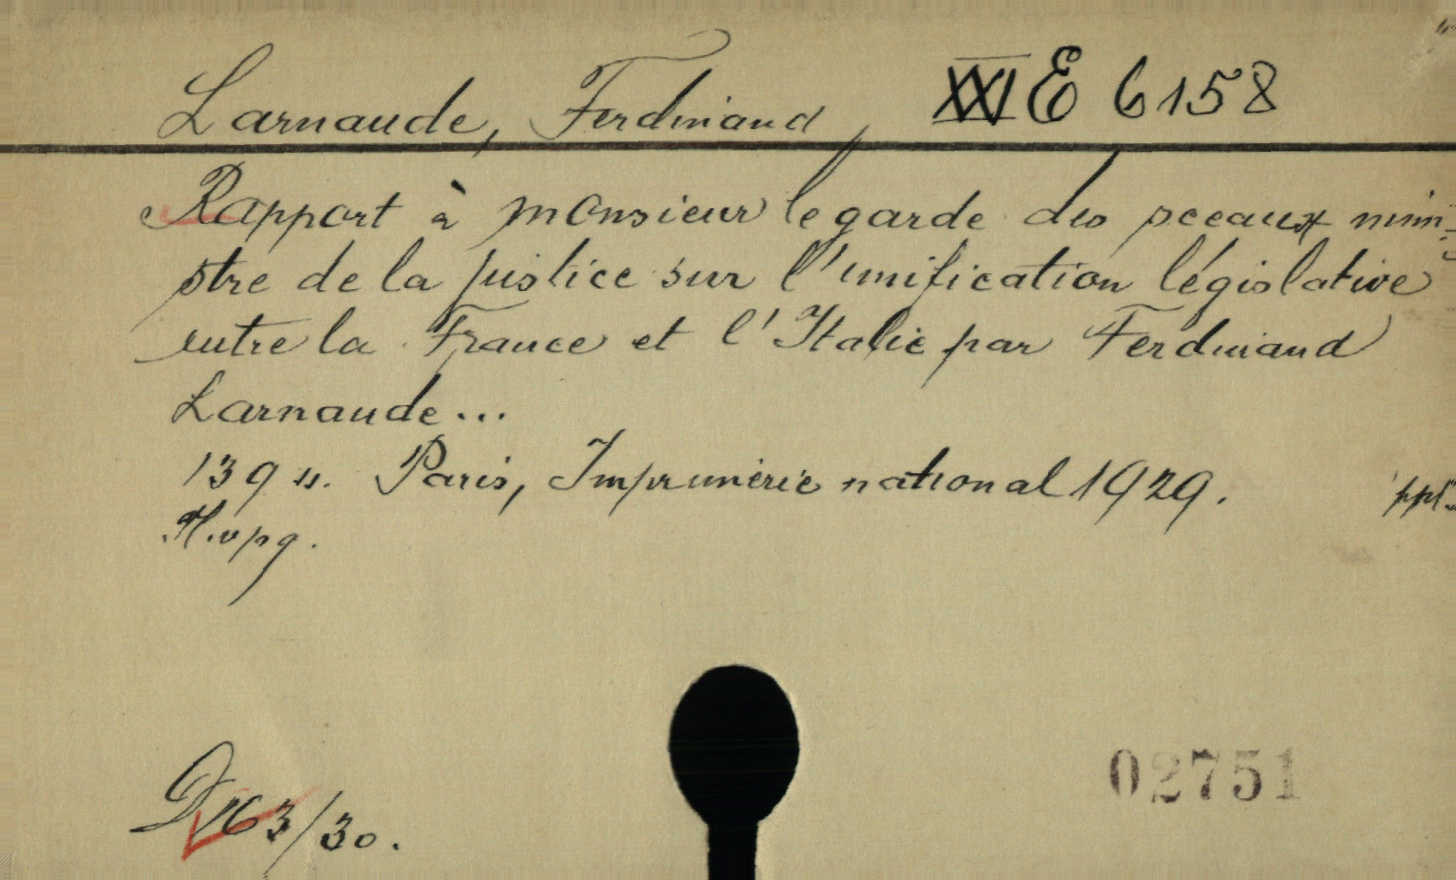 Larnaude, Ferdinand, XXI E 6158
Rapport à monsieur le garde des sceaux mini-
stre de la justice sur l'unification législative
entre la France et l'Italie par Ferdinand
Larnaude...
139 s. Paris, Imprimérie national 1929.
02751
D 763/30.